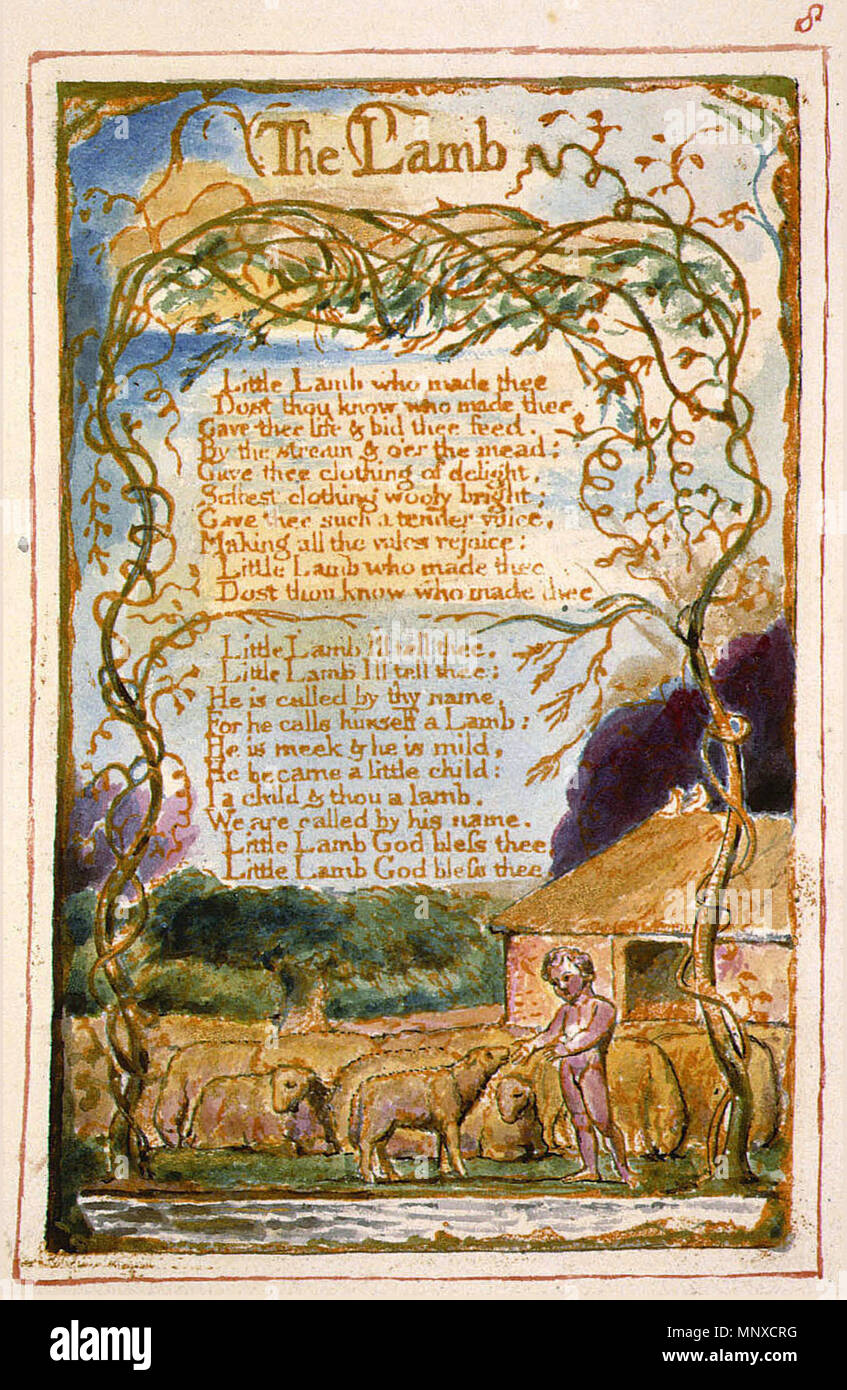 8
The Lamb
Little Lamb who made thee
Dost thou know who made thee
Gave thee life & bid thee feed.
By the stream & oer the mead;
Gave thee clothing of delight,
Softest clothing wooly bright;
Gave thee such a tender voice,
Making all the vales rejoice:
Little Lamb who made thee
Dost thou know who made thee
Little Lamb I'll tell thee,
Little Lamb I'll tell thee:
He is called by thy name,
For he calls himself a Lamb:
He is meek & he is mild,
He became a little child:
I a child & thou a lamb,
We are called by his name.
Little Lamb God bleſs thee
Little Lamb God bleſs thee
alamy
Image ID: MNXCRG
www.alamy.com